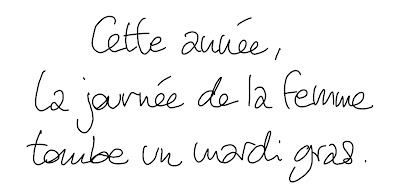 Cette année,
la journée de la femme
tombe un mardi gras.